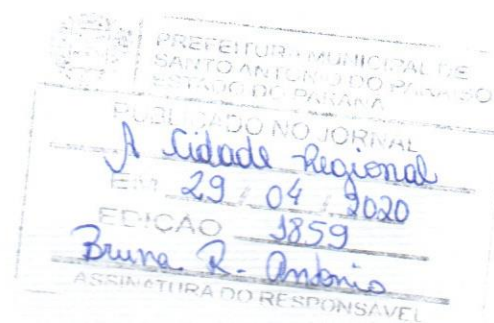 PREFEITURA MUNICIPAL DE
SANTO ANTONIO DO PARAISO
ESTADO DO PARANA
PUBLICADO NO JORNAL
A Cidade Regional
EM 29 / 04 / 2020
EDICAO 1859
Bruna R. Antonio
ASSINATURA DO RESPONSAVEL